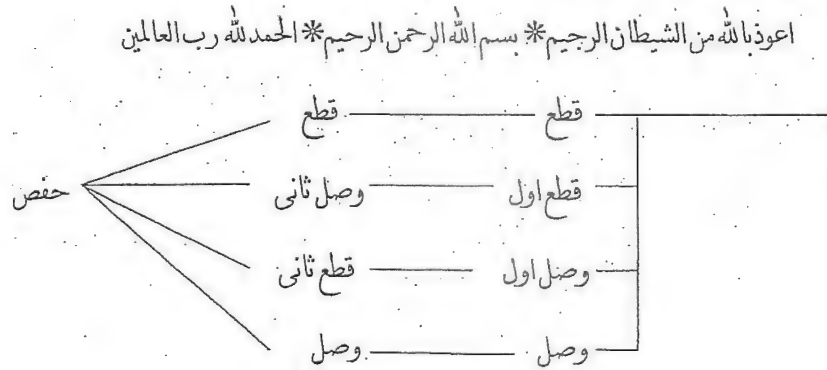 اعوذ بالله من الشيطان الرجيم * بسم الله الرحمن الرحيم * الحمد لله رب العالمين
قطع قطع
قطع اول وصل ثانى
حفص
وصل اول قطع ثانى
وصل وصل